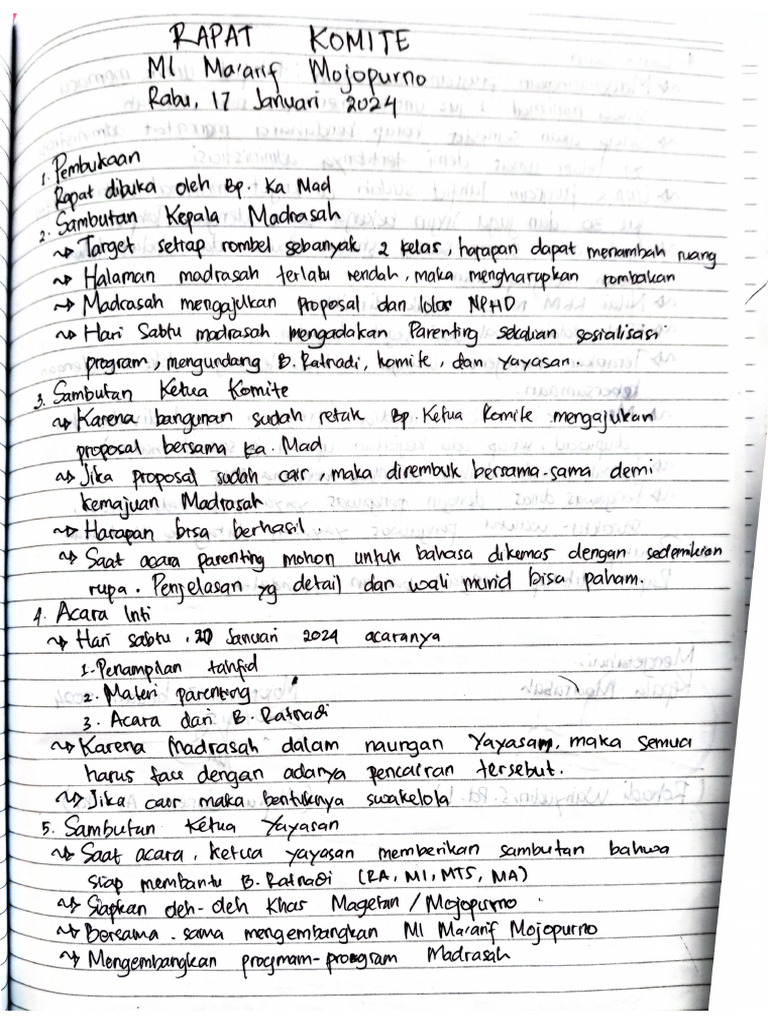 RAPAT KOMITE
MI Ma'arif Mojopurno
Rabu, 17 Januari 2024
1. Pembukaan
Rapat dibuka oleh Bp. Ka Mad
2. Sambutan Kepala Madrasah
~> Target setiap rombel sebanyak 2 kelas, harapan dapat menambah ruang
~> Halaman madrasah terlalu rendah, maka mengharapkan rombakan
~> Madrasah mengajukan Proposal dan lolos NPHD
~> Hari Sabtu madrasah mengadakan Parenting sekalian sosialisasi
program, mengundang B. Ratnadi, komite, dan yayasan.
3. Sambutan Ketua Komite
~> Karena bangunan sudah retak Bp. Ketua Komite mengajukan
proposal bersama Ka. Mad
~> Jika proposal sudah cair, maka dirembuk bersama-sama demi
kemajuan Madrasah
~> Harapan bisa berhasil.
~> Saat acara parenting mohon untuk bahasa dikemas dengan sedemikian
rupa. Penjelasan yg detail dan wali murid bisa paham.
4. Acara Inti
~> Hari sabtu, 20 Januari 2024 acaranya
1. Penampilan tahfid
2. Materi parenting
3. Acara dari B. Ratnadi
~> Karena Madrasah dalam naungan Yayasan, maka semua
harus face dengan adanya pencairan tersebut.
~> Jika cair maka bentuknya swakelola
5. Sambutan Ketua Yayasan
~> Saat acara, ketua yayasan memberikan sambutan bahwa
siap membantu B. Ratnadi (RA, MI, MTS, MA)
~> Siapkan oleh-oleh Khas Magetan / Mojopurno
~> Bersama-sama mengembangkan MI Ma'arif Mojopurno
~> Mengembangkan progmam-program Madrasah